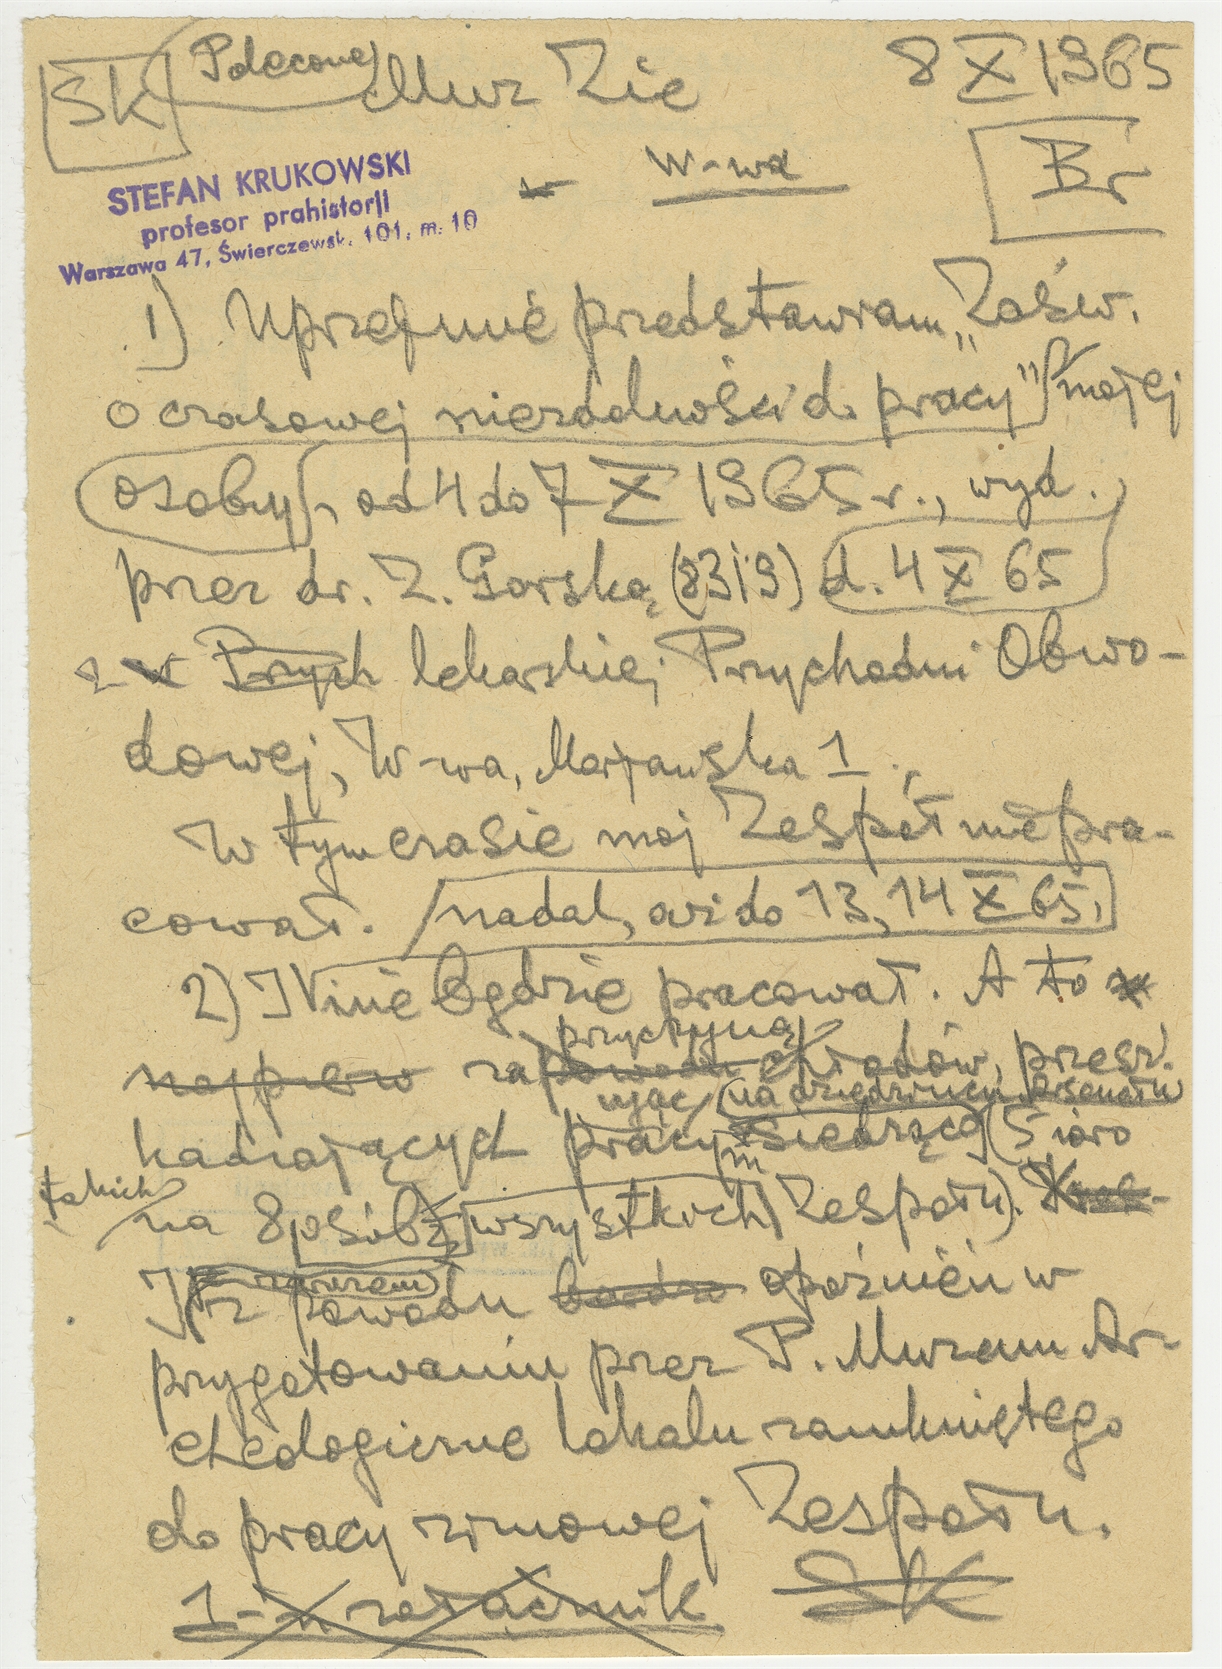 SK Polecone Muz Zie 8 X 1965
W-wa Br
STEFAN KRUKOWSKI
profesor prahistorji
Warszawa 47, Świerczewsk. 101, m. 10
1) Uprzejmie przedstawiam „Zaśw.
o czasowej niezdolności do pracy" mojej
osoby, od 4 do 7 X 1965 r., wyd.
przez dr. Z. Gorską (8319) d. 4 X 65
z w Przych lekarskiej Przychodni Obwo-
dowej, W-wa, Marjańska 1.
W tym czasie mój Zespół nie pra-
cował. nadal, aż do 13, 14 X 65.
2) I nie będzie pracował. A to
najpierw za powodu chłodów, przesz.
przyczyną
kadzających pracy siedzącej (5 iaro
ująć na dziedzińcu Arsenału
takich
na 8 osób z wszystkich Zespołu).
I z powodu bardzo opóźnień w
przygotowaniu przez P. Muzeum Ar-
cheologiczne lokalu zamkniętego
do pracy zimowej Zespołu.
1-n załącznik SK